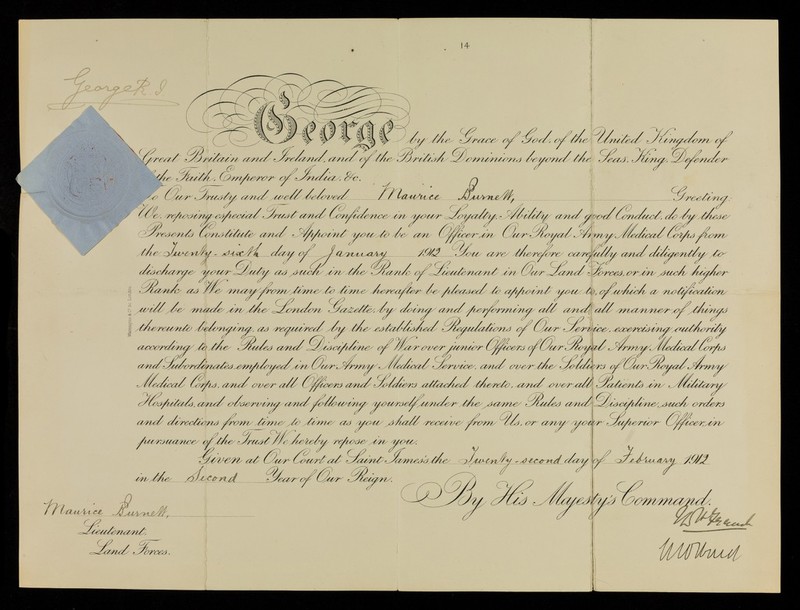 14
George R I
George by the Grace of God, of the United Kingdom of
Great Britain and Ireland, and of the British Dominions beyond the Seas, King, Defender
the Faith, Emperor of India, &c.
o Our Trusty and well beloved Maurice Burnett, Greeting:
We, reposing especial Trust and Confidence in your Loyalty, Ability and good Conduct, do by these
Presents Constitute and Appoint you to be an Officer in Our Royal Army Medical Corps from
the Twenty-sixth day of January 1912 You are therefore carefully and diligently to
discharge your Duty as such in the Rank of Lieutenant in Our Land Forces, or in such higher
Rank as We may from time to time hereafter be pleased to appoint you to, of which a notification
will be made in the London Gazette, by doing and performing all and all manner of things
thereunto belonging, as required by the established Regulations of Our Service, exercising authority
according to the Rules and Discipline of War over junior Officers of Our Royal Army Medical Corps
and Subordinates employed in Our Army Medical Service, and over the Soldiers of Our Royal Army
Medical Corps, and over all Officers and Soldiers attached thereto, and over all Patients in Military
Hospitals, and observing and following yourself under the same Rules and Discipline, such orders
and directions from time to time as you shall receive from Us, or any your Superior Officer, in
pursuance of the Trust We hereby repose in you.
Given at Our Court at Saint James's the Twenty-second day of February 1912
in the Second Year of Our Reign.
By His Majesty's Command.
Maurice Burnett,
Lieutenant
Land Forces.